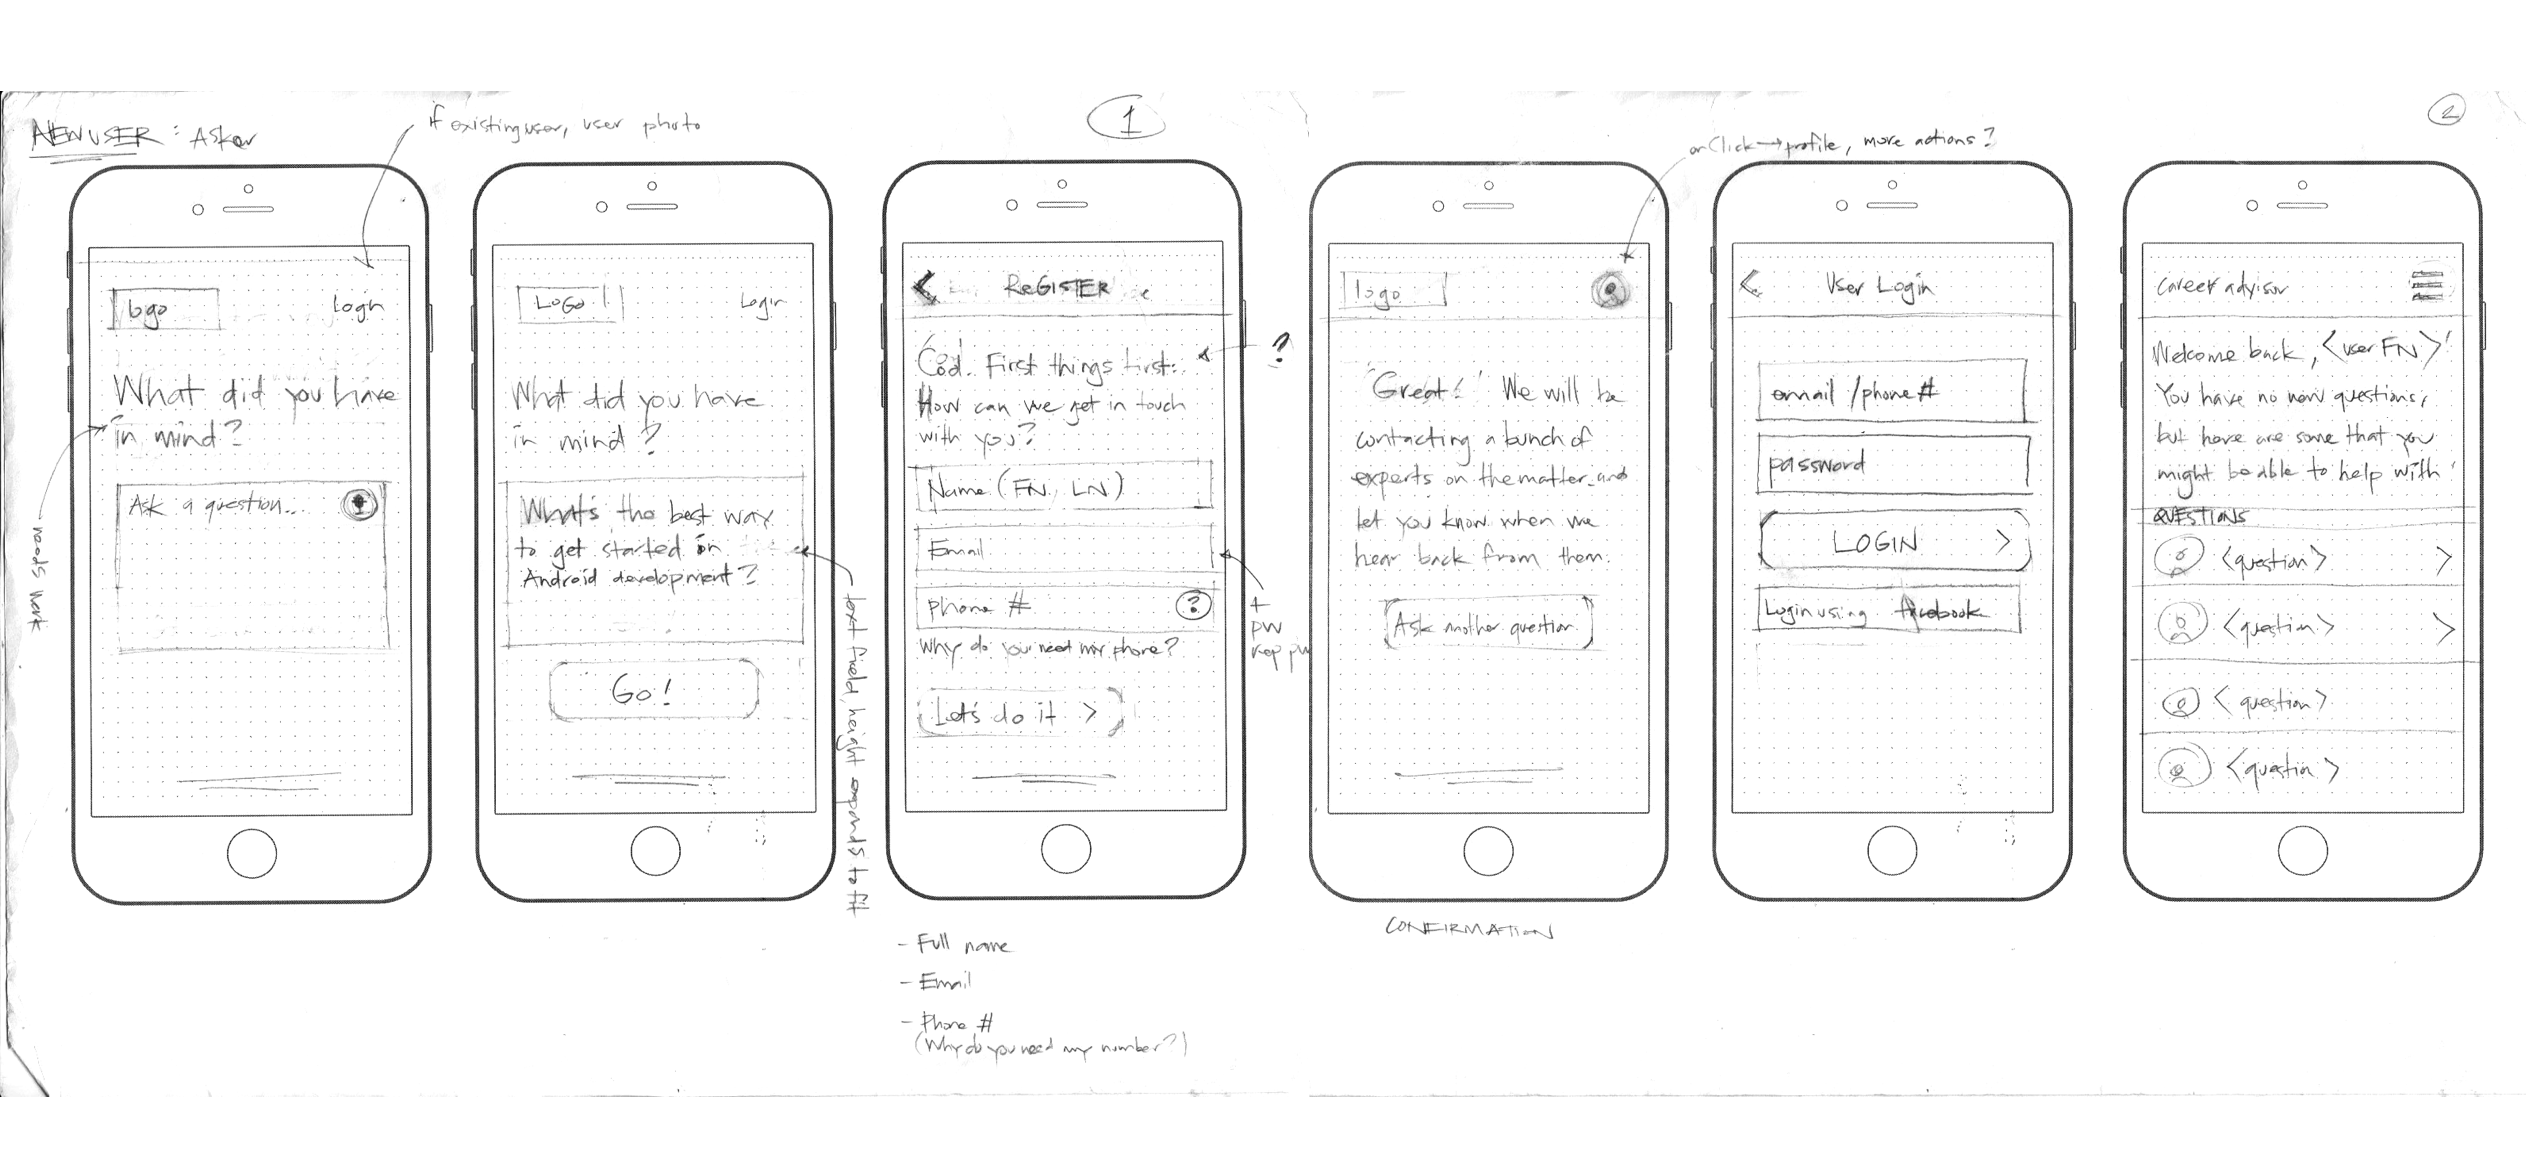 NEW USER : Asker
if existing user, user photo
1
onClick → profile, more actions?
2
logo
Login
What did you have
in mind?
Ask a question...
needs work
LOGO
Login
What did you have
in mind?
What's the best way
to get started on
Android development?
Go!
text field, height expands to fit
REGISTER
Cool. First things first:
How can we get in touch
with you?
?
Name (FN, LN)
Email
phone #
?
Why do you need my phone?
Let's do it >
+
pw
rep pw
- Full name
- Email
- Phone #
(Why do you need my number?)
logo
Great! We will be
contacting a bunch of
experts on the matter and
let you know when we
hear back from them.
Ask another question
CONFIRMATION
< User Login
email /phone #
password
LOGIN >
Login using facebook
career advisor
Welcome back, <user FN>!
You have no new questions,
but here are some that you
might be able to help with
QUESTIONS
<question> >
<question> >
<question>
<question>